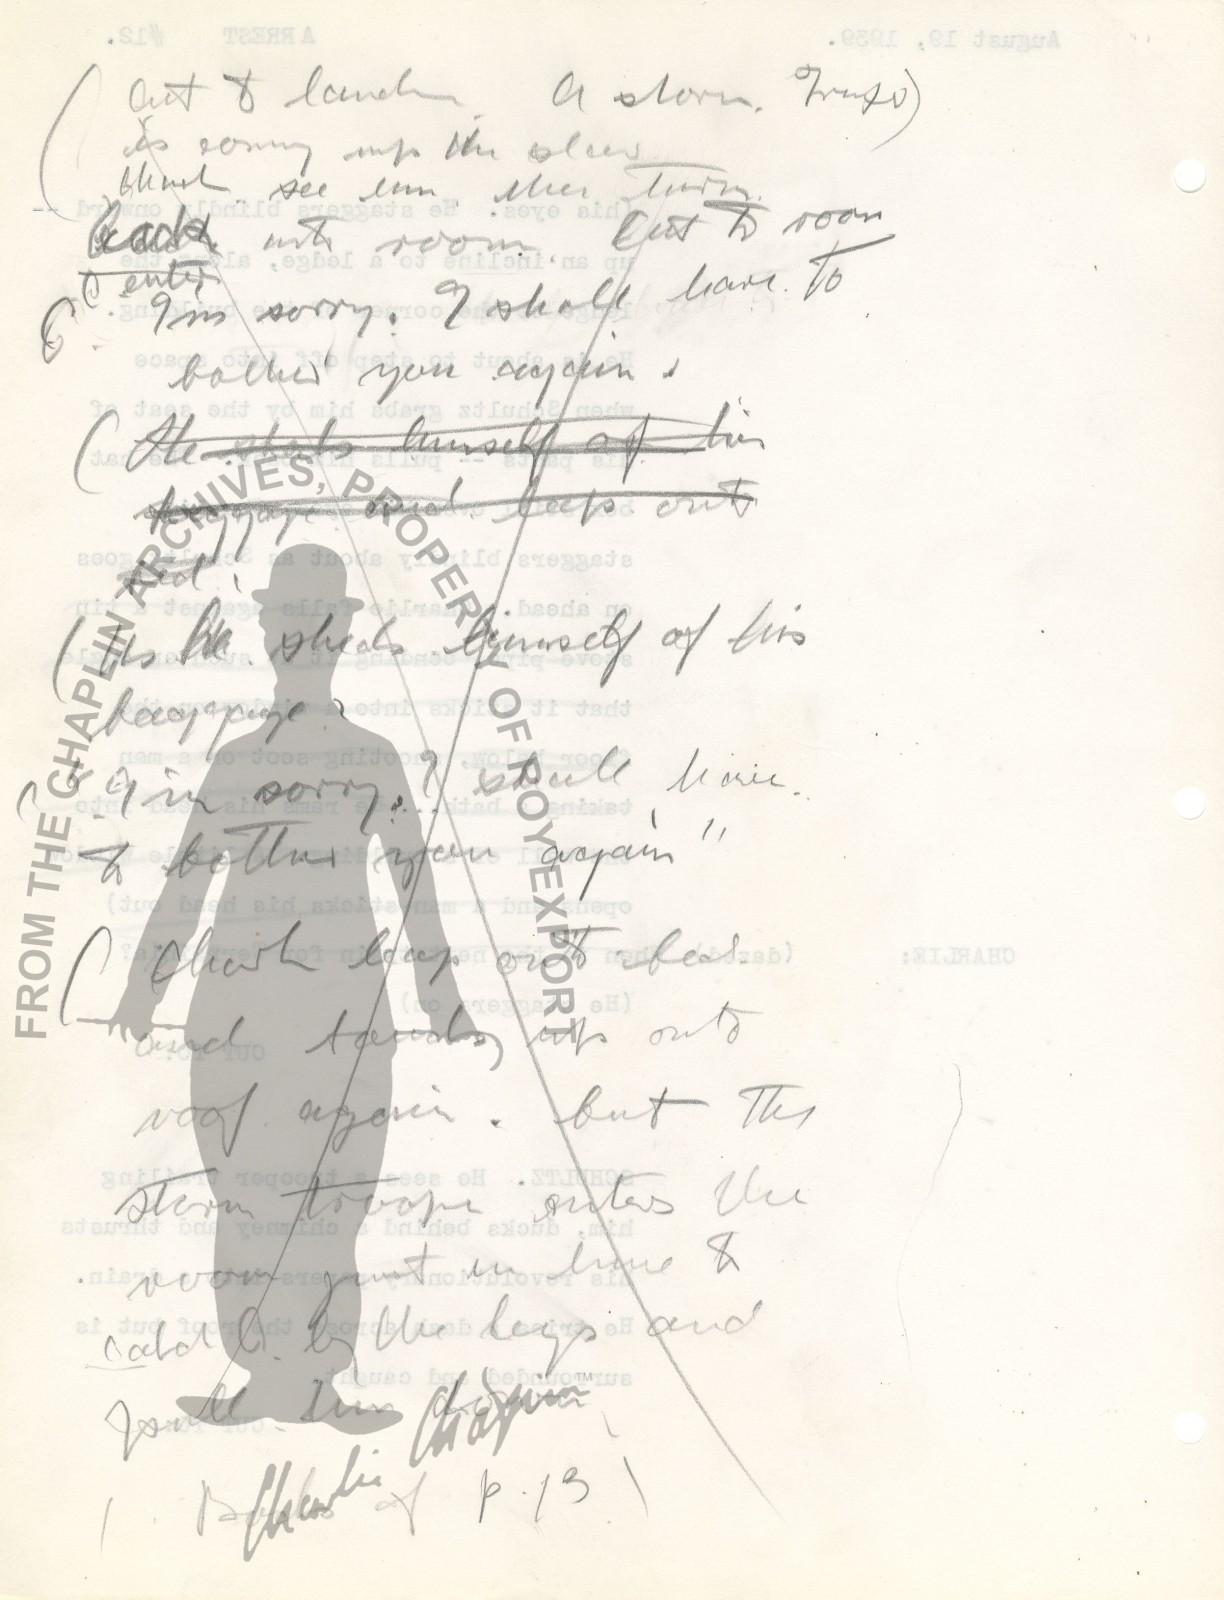 (Cut to landin A storm. Troop)
is coming up the
see him then turn
back into room. Cut to room
enter
C. I'm sorry. I shall have to
bother you again.
(He sheds himself of his
baggage and leaps onto
bed.
(As he sheds himself of his
baggage.
C I'm sorry. I shall have
to bother you again"
(Charlie leaps onto bed
and up onto
roof again. but the
storm trooper enters the
room just in time to
catch C. by the legs and
pull him down
( Back of p. 13 )
FROM THE CHAPLIN ARCHIVES, PROPERTY OF ROY EXPORT
Charlie Chaplin™
August 19, 1939. ARREST #12.
(his eyes. He staggers blindly onward --
up an incline to a ledge, along the
corner building.
He is about to step off into space
when Schultz grabs him by the seat of
his pants -- pulls hat
staggers blindly about as Schultz goes
on ahead. Charlie falls against a tin
stove pipe bending it
that it sticks into a the
floor below, shooting soot on a man
taking a bath... He rams his head into
opens and a man sticks his head out)
CHARLIE: (dazed) When the next for
(He staggers on)
CUT TO:
SCHULTZ. He sees a trooper trailing
him, ducks behind a chimney and thrusts
his revolutionary papers drain.
He tries a dash across the roof but is
surrounded and caught
CUT TO: